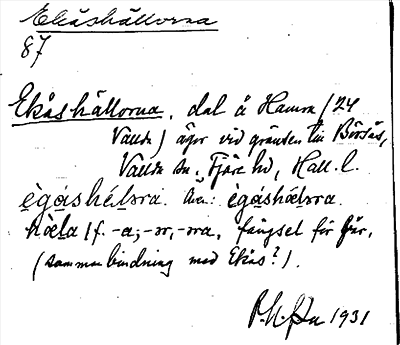 Ekåshällorna
87
Ekåshällorna, del å Hamra (24
Valla) ägor vid gränsen till Börsås,
Valla sn, Fjäre hd, Hall. l.
ègåshélɔra. Även: ègåshœlɔra.
hœla f. -a; -ɔr, -ɔra, fängsel för får.
(sammanbindning med Ekås?).
1931